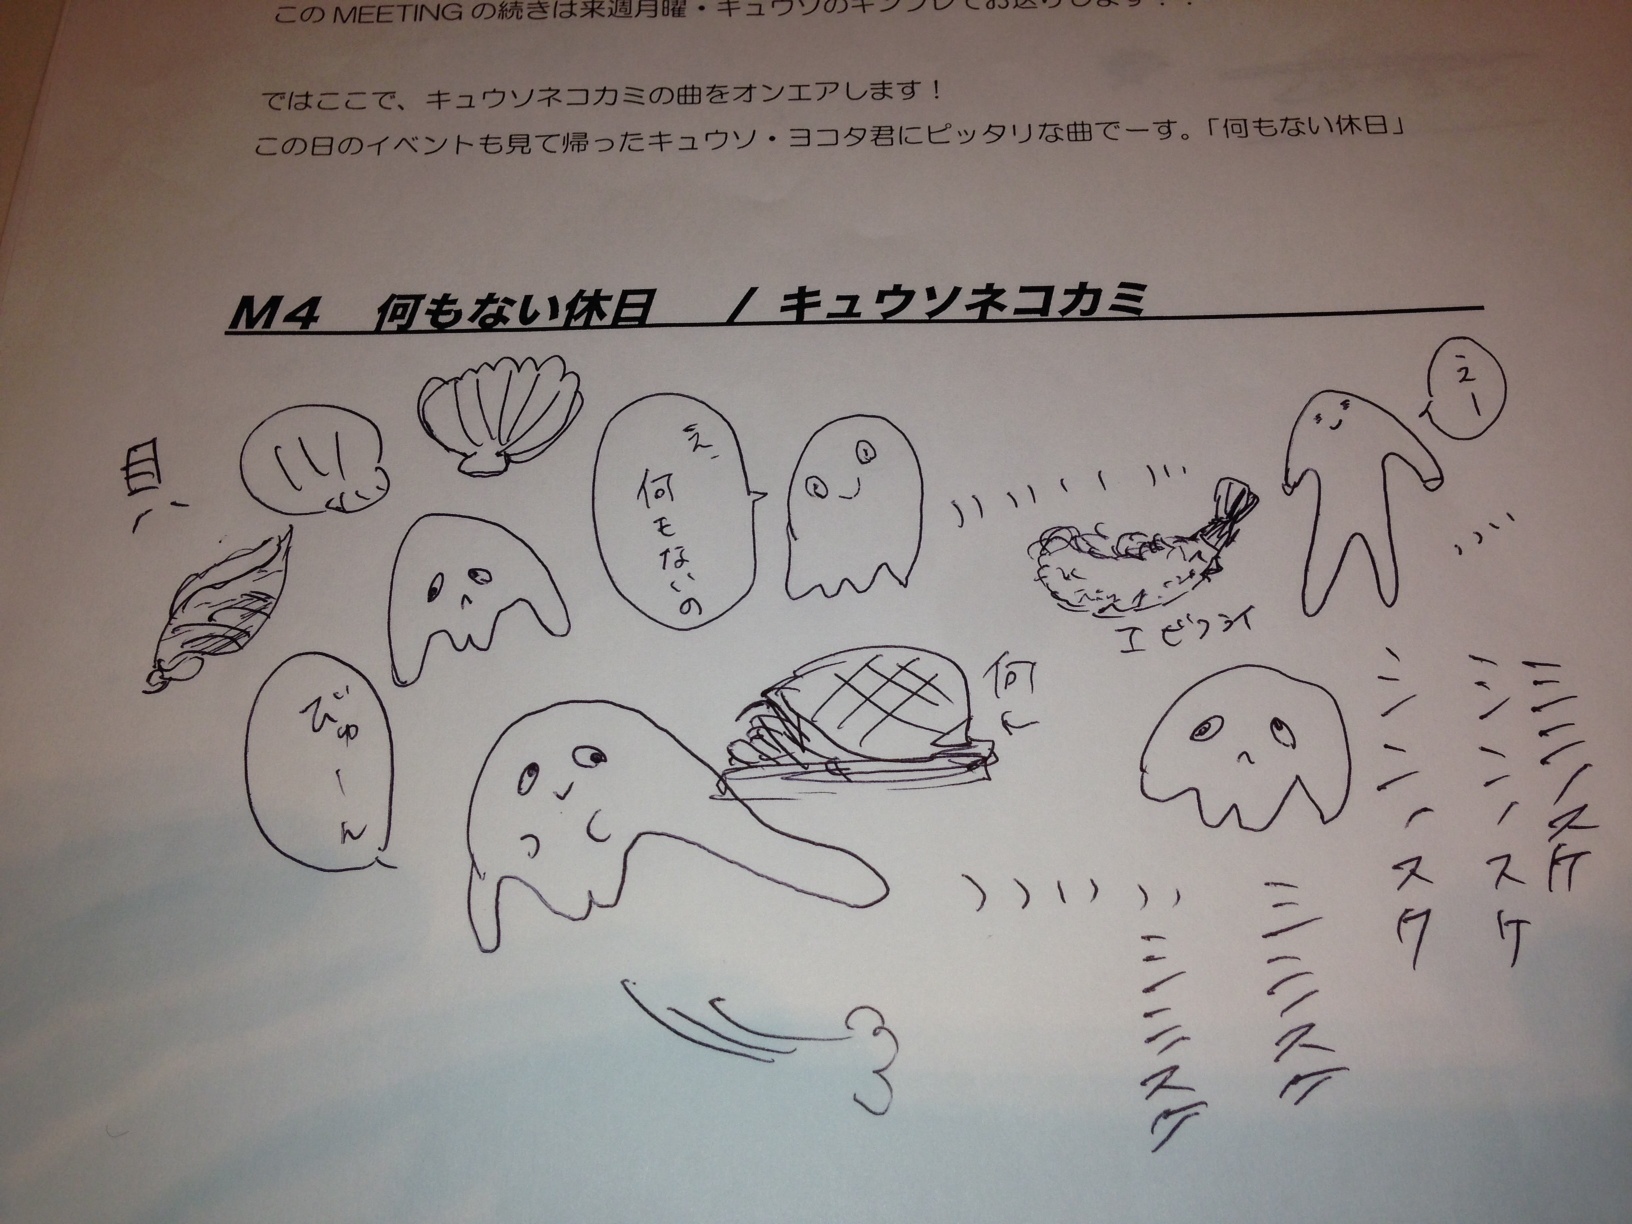 この MEETING の続きは来週月曜・キュウソのキンプレでお送りします！！
ではここで、キュウソネコカミの曲をオンエアします！
この日のイベントも見て帰ったキュウソ・ヨコタ君にピッタリな曲でーす。「何もない休日」
M4　何もない休日　/ キュウソネコカミ
えー
貝
え、
何もないの
エビフライ
びゅーん
何
スケ
スケ
スケ
スケ
スケ